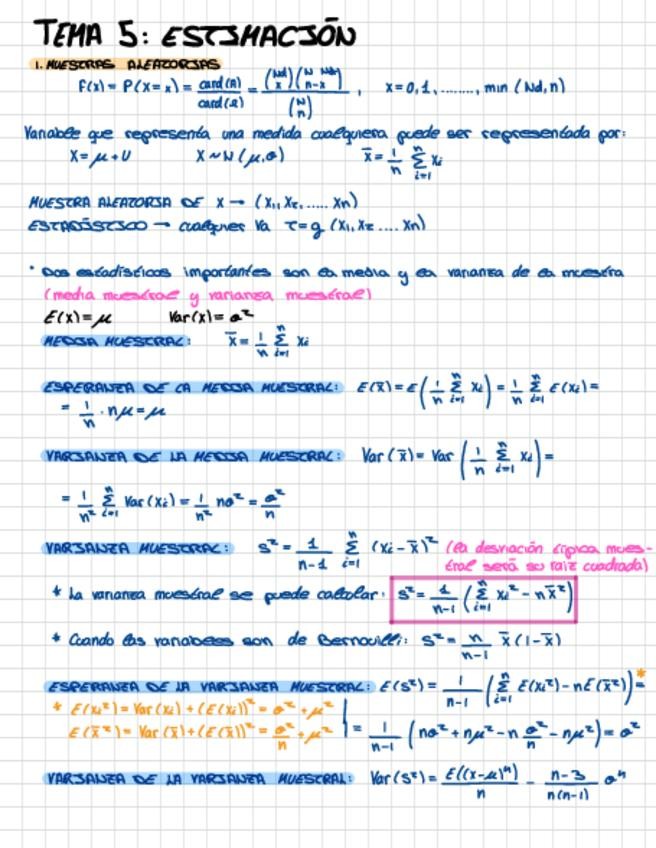 TEMA 5: ESTIMACIÓN
1. MUESTRAS ALEATORIAS
f(x) = P(X=x) = card(A)/card(Ω) = (Nd x)(N-Nd n-x)/(N n), x=0,1,........, min (Nd,n)
Variable que representa una medida cualquiera puede ser representada por:
X=μ+U X~N(μ,σ) x̄ = 1/n Σ_{i=1}^{n} xi
MUESTRA ALEATORIA DE X → (X1, X2, ..... Xn)
ESTADÍSTICO → cualquier Va T=g (X1, X2 .... Xn)
· Dos estadísticos importantes son la media y la varianza de la muestra
(media muestral y varianza muestral)
E(x)=μ Var(x)=σ²
MEDIA MUESTRAL: x̄ = 1/n Σ_{i=1}^{n} xi
ESPERANZA DE LA MEDIA MUESTRAL: E(x̄) = E(1/n Σ_{i=1}^{n} xi) = 1/n Σ_{i=1}^{n} E(xi) =
= 1/n · nμ = μ
VARIANZA DE LA MEDIA MUESTRAL: Var(x̄) = Var (1/n Σ_{i=1}^{n} xi) =
= 1/n² Σ_{i=1}^{n} Var(xi) = 1/n² nσ² = σ²/n
VARIANZA MUESTRAL: s² = 1/n-1 Σ_{i=1}^{n} (xi-x̄)² (la desviación típica mues-
tral será su raiz cuadrada)
* La varianza muestral se puede calcular: s² = 1/n-1 (Σ_{i=1}^{n} xi² - nx̄²)
* Cuando las variables son de Bernouilli: s² = n/n-1 x̄(1-x̄)
ESPERANZA DE LA VARIANZA MUESTRAL: E(s²) = 1/n-1 (Σ_{i=1}^{n} E(xi²) - nE(x̄²)) =*
* E(xi²) = Var(xi) + (E(xi))² = σ² + μ²
E(x̄²) = Var(x̄) + (E(x̄))² = σ²/n + μ²
= 1/n-1 (nσ² + nμ² - n σ²/n - nμ²) = σ²
VARIANZA DE LA VARIANZA MUESTRAL: Var(s²) = E((x-μ)⁴)/n - n-3/n(n-1) σ⁴